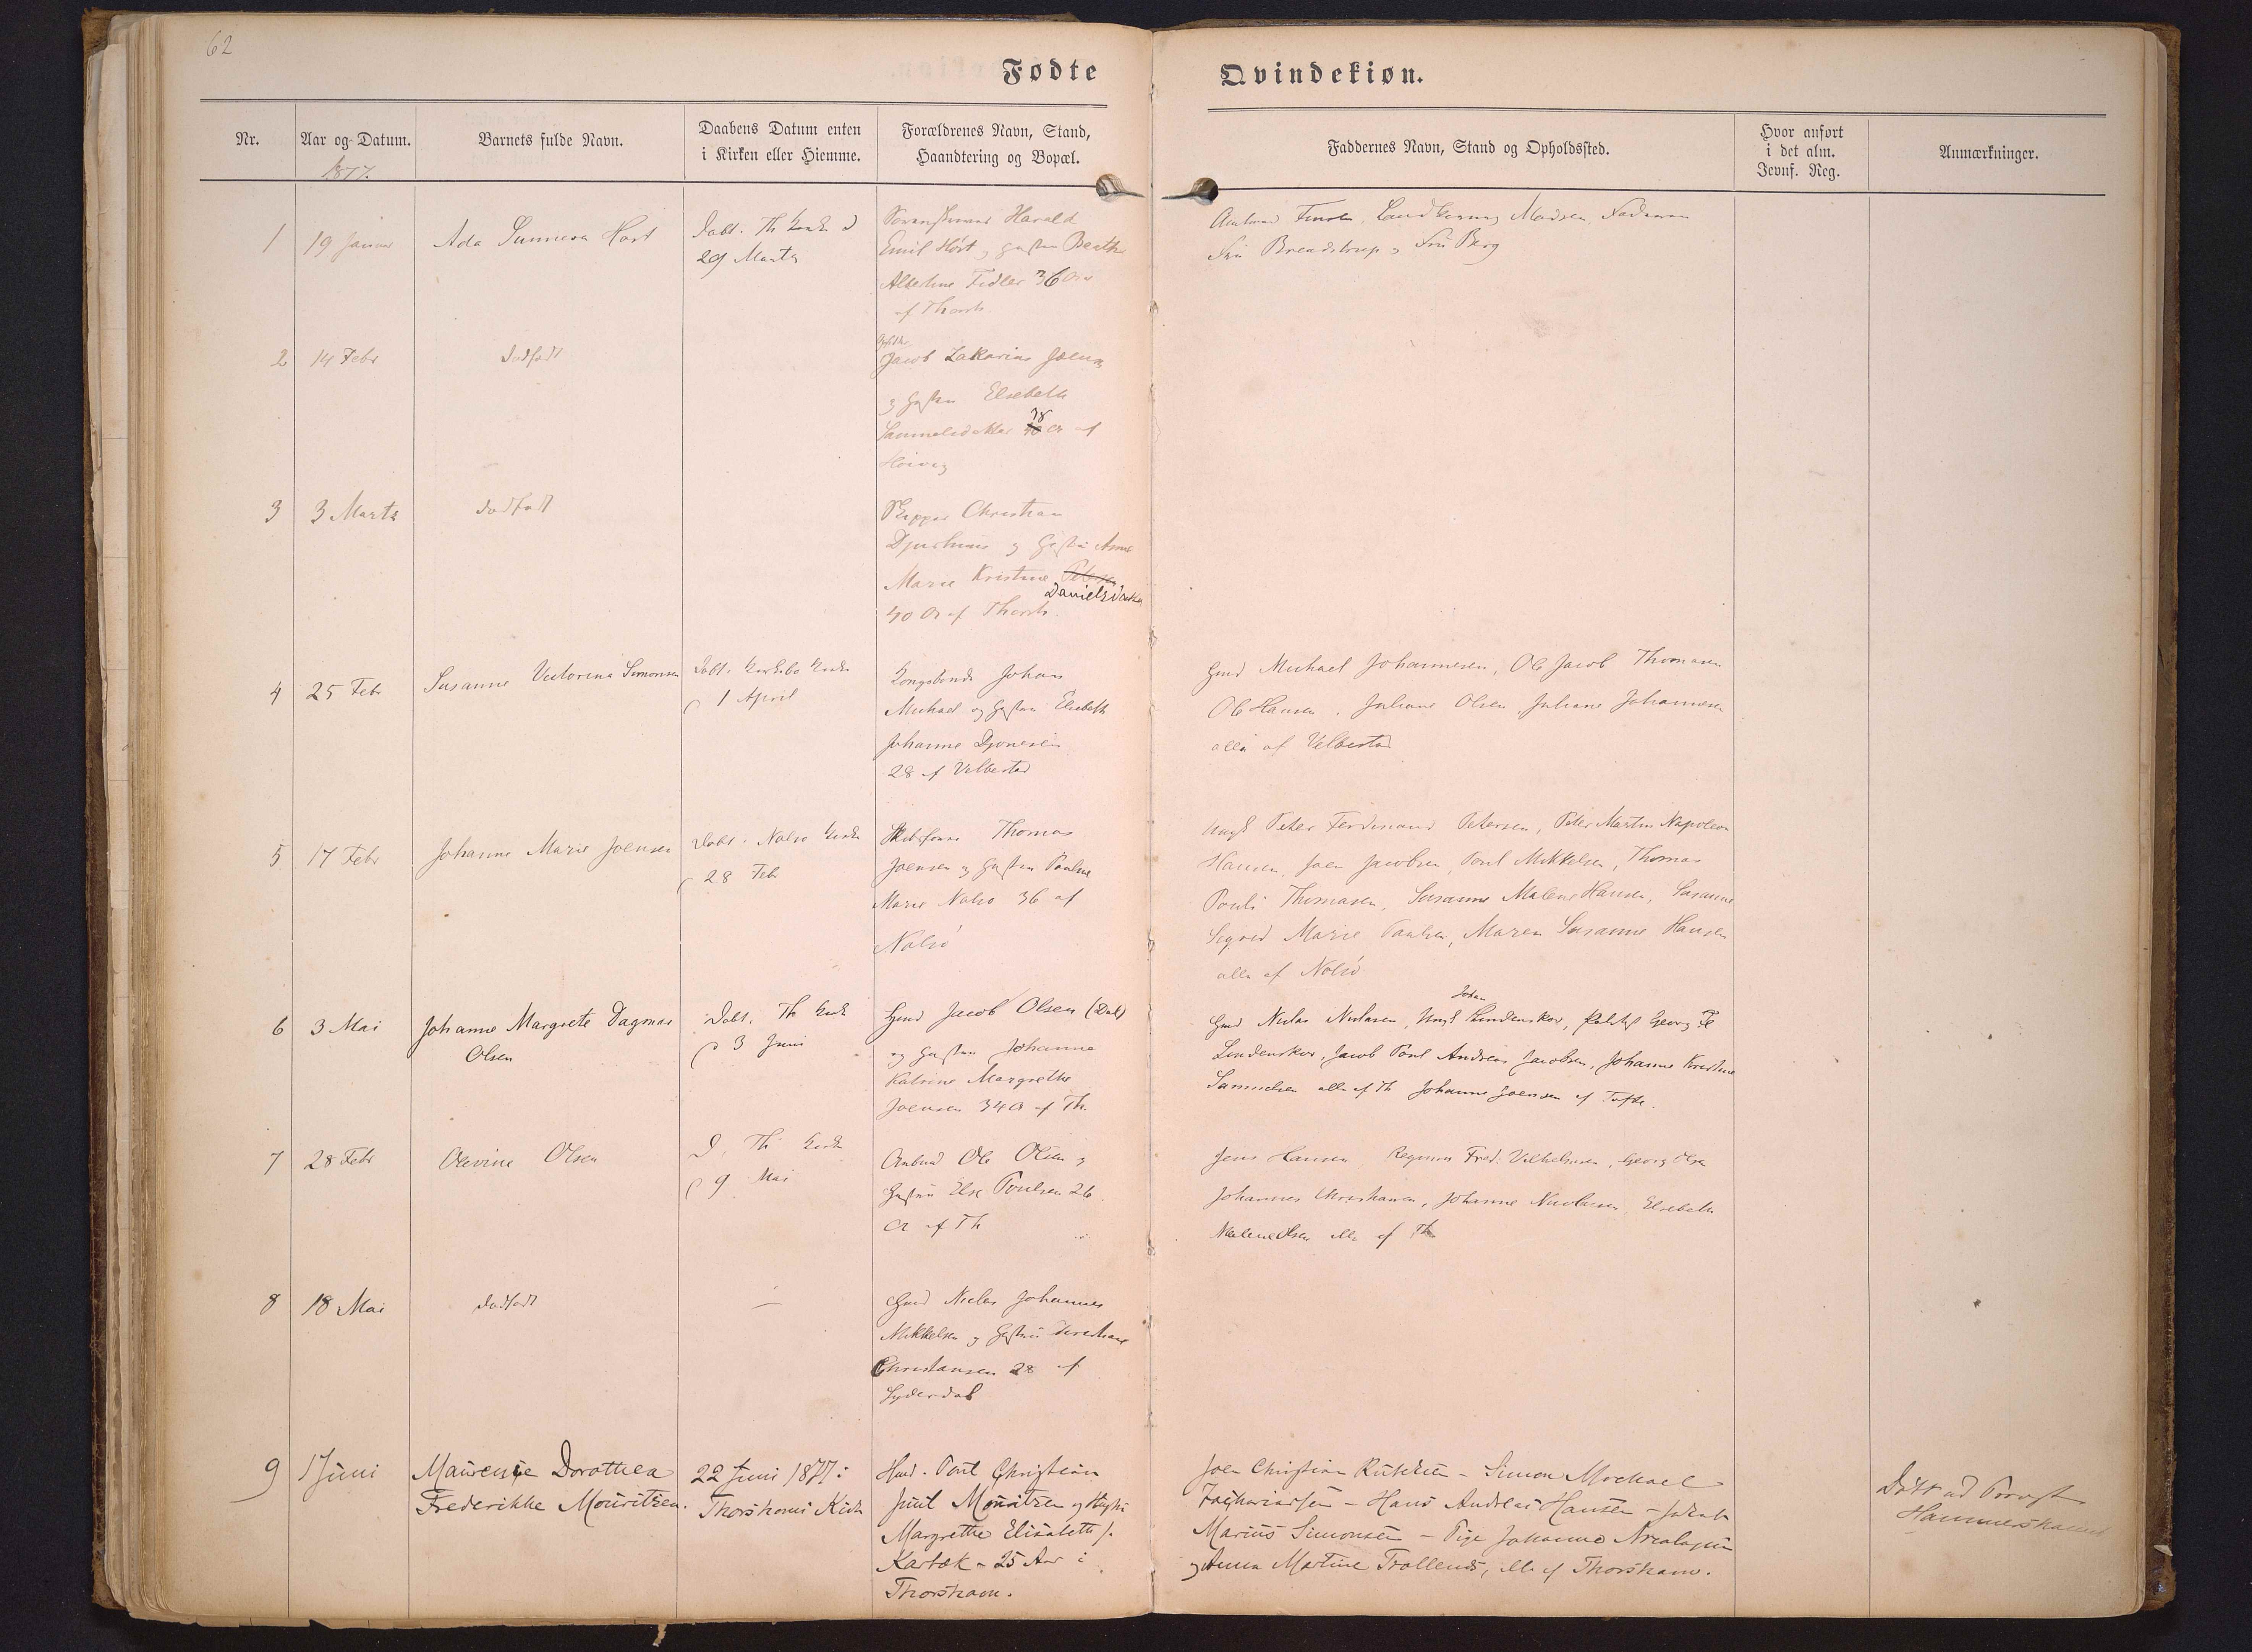 62
Fødte
Qvindekiøn.
Nr.
Aar og Datum.
1877.
Barnets fulde Navn.
Daabens Datum enten
i Kirken eller Hiemme.
Forældrenes Navn, Stand,
Haandtering og Bopæl.
Faddernes Navn, Stand og Opholdssted.
Hvor anført
i det alm.
Jevnf. Reg.
Anmærkninger.
1
19 Januar
Ada Sunneva
Døbt. Th Kirke d
29 Marts
Harald
Emil Høst og Hustru
Albertine 36 Aar
af Thorsh
Amtmand Finsen, Madsen
Fru Breadstrup og Fru Berg
2
14 Febr
dødfødt
Jacob Zakarias Joensen
og Hustru Elsebeth
Samuelsdatter 38 Ar af
Hoivig
3
3 Marts
dødfødt
Skipper Christian
Djurhuus og Hustru Anne
Marie Kristine
Danielsdatter
40 Ar af Thorsh.
4
25 Febr
Susanne Victorina Simonsen
Døbt i Kirkebø Kirke
d 1 April
Kongsbonde Johan
Michael og Hustru Elsebeth
Johanne Djonesen
28 af Velbestad
Gmd Michael Johannesen, Ole Jacob Thomasen
Ole Hansen, Juliane Olsen, Juliane Johannesen
alle af Velbestad
5
17 Febr
Johanne Marie Joensen
Døbt i Nolsø Kirke
d 28 Feb
Thomas
Joensen og Hustru Pauline
Marie Nolsø 36 af
Nolsø
Ungk Peter Ferdinand Petersen, Peter Martin Napoleon
Hansen, Joen Jacobsen, Poul Mikkelsen, Thomas
Pouli Thomasen, Susanne Malene Hansen, Susanne
Sigrid Marie Paulsen, Maren Susanne Hansen
alle af Nolsø
6
3 Mai
Johanne Margrete Dagmar
Olsen
Døbt. Th Kirk
d 3 Juni
Gmd Jacob Olsen (Dal)
og Hustru Johanne
Katrine Margrethe
Joensen 34 Ar af Th.
Johan
Gmd Niclas Niclasen, Ungk Lindenskov, Georg
Lindenskov, Jacob Poul Andreas Jacobsen, Johanne Kristine
Samuelsen alle af Th Johanne Joensen af Tofte.
7
28 Febr
Olevine Olsen
D. Th Kirke
d 9 Mai
Ole Olsen og
Hustru Else Poulsen 26
Ar af Th
Jens Hansen Fred. Vilhelmsen, Georg Olsen
Johannes Christiansen, Johanne Nicolasen, Elsebeth
Malene Olsen alle af Th
8
18 Mai
dødfødt
—
Gmd Niclas Johannes
Mikkelsen og Hustru Christiane
Christansen 28 af
Syderdal
9
1 Juni
Maurentze Dorothea
Frederikke Mouritzen.
22 Juni 1877 i
Thorshavns Kirke
Hmd. Poul Christian
Juul Mouritzen og Hustru
Margrethe Elisabeth f.
Karbæk - 25 Aar i
Thorshavn.
Joen Christian - Simon Michael
Zachariassen - Hans Andreas Hansen - Jakob
Marius Simonsen - Pige Johanne Nicolajsen
og Anna Martine Trollenes, alle af Thorshavn.
Døbt ad Provst
Hammershaimb